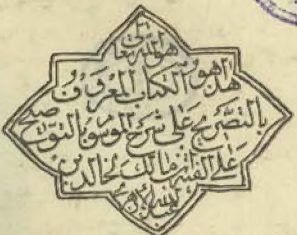 هو الله تعالى
هذا هو الكتاب المعروف
بالتصريح على شرح الموسوم بالتوضيح
على الفية ابن مالك لخالد بن
عبد الله الازهر